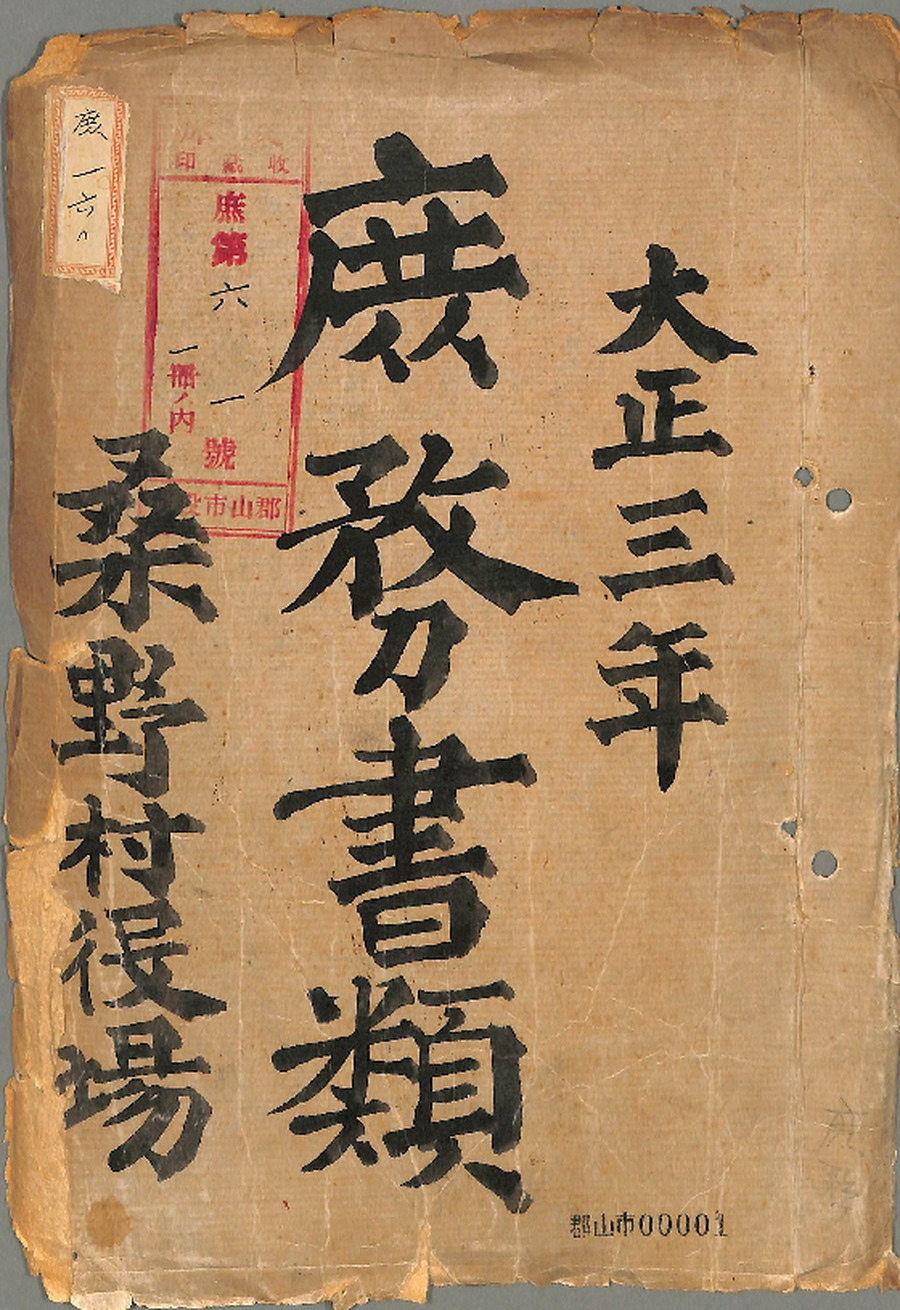 大正三年
庶務書類
桑野村役場
収蔵印
庶第六一號
一冊ノ内
郡山市役
庶一六〇
郡山市00001